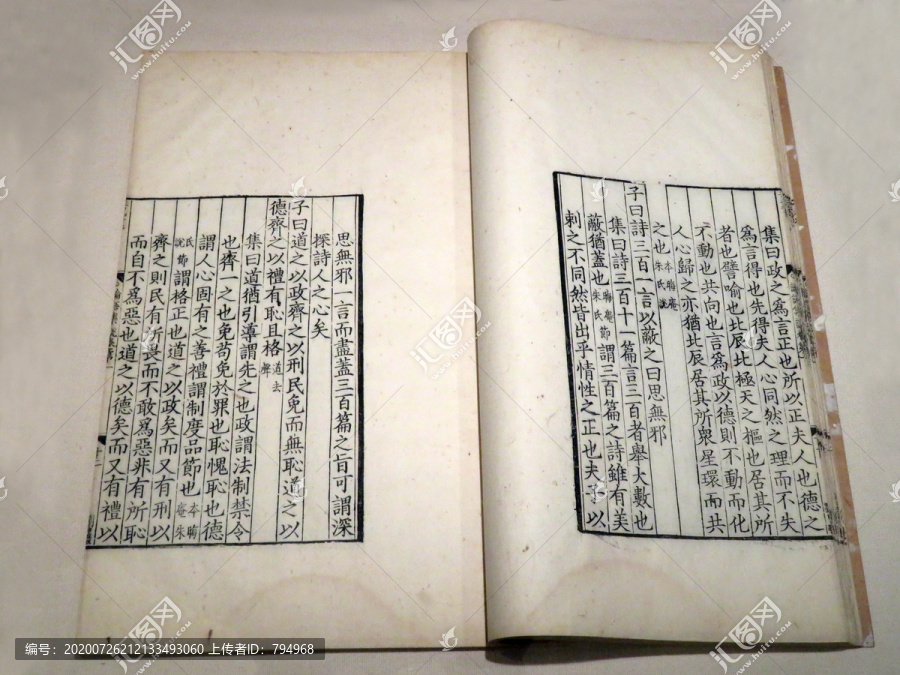 集曰政之爲言正也所以正夫人也德之
爲言得也先得夫人心同然之理而不失
者也譬喻也北辰北極天之樞也居其所
不動也共向也言爲政以德則不動而化
人心歸之亦猶北辰居其所衆星環而共
之也本聊菴朱氏說
子曰詩三百一言以蔽之曰思無邪
集曰詩三百十一篇言三百者舉大數也
蔽猶蓋也聊菴節朱氏謂三百篇之詩雖有美
刺之不同然皆出乎情性之正也夫子以
思無邪一言而盡蓋三百篇之旨可謂深
探詩人之心矣
子曰道之以政齊之以刑民免而無恥道之以
德齊之以禮有恥且格道去聲
集曰道猶引導謂先之也政謂法制禁令
也齊一之也免苟免於罪也恥愧恥也德
謂人心固有之善禮謂制度品節也本聊菴朱
氏說節謂格正也道之以政矣而又有刑以
齊之則民有所畏而不敢爲惡非有所恥
而自不爲惡也道之以德矣而又有禮以
十二
汇图网
www.huitu.com
编号：20200726212133493060 上传者ID：794968